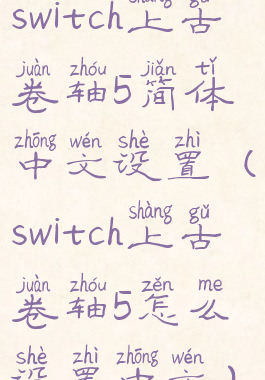 shàng gǔ
switch上古
juàn zhóu jiǎn tǐ
卷轴5简体
zhōng wén shè zhì
中文设置（
shàng gǔ
switch上古
juàn zhóu zěn me
卷轴5怎么
shè zhì zhōng wén
设置中文）